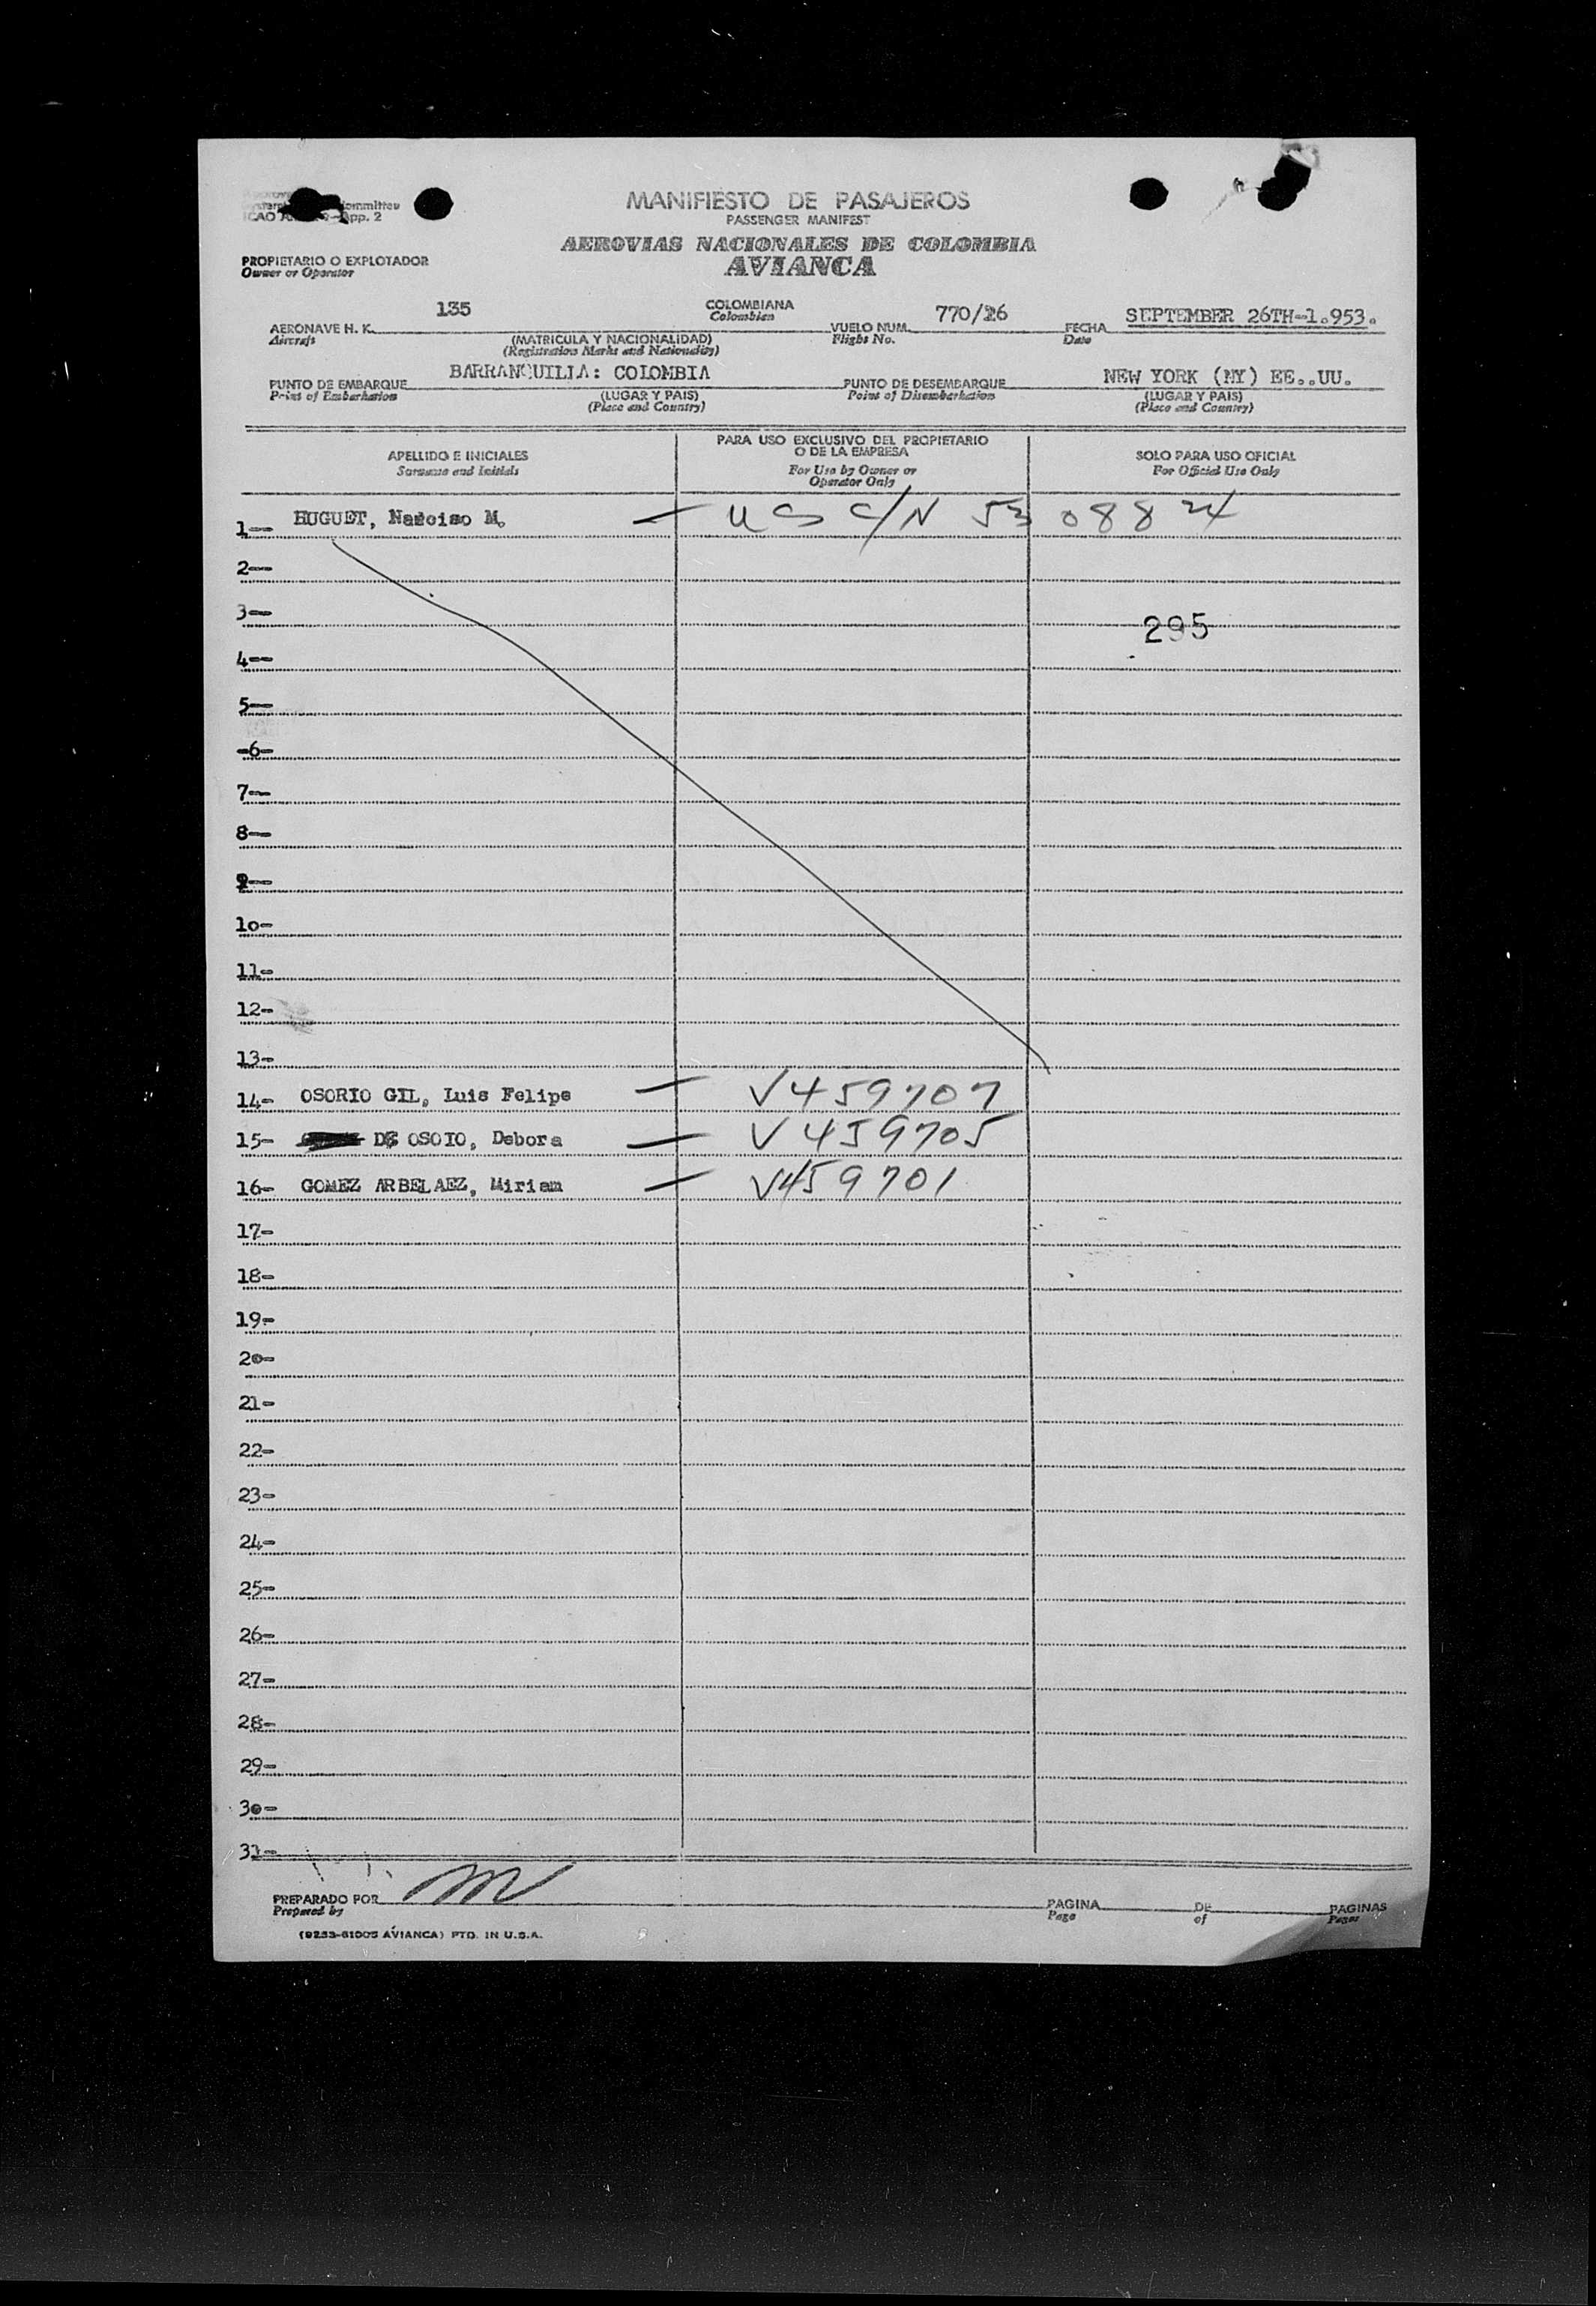 MANIFIESTO DE PASAJEROS
ommittee
PASSENGER MANIFEST
App. 2
AEROVIAS NACIONALES DE COLOMBIA
PROPIETARIO O EXPLOTADOR
AVIANCA
Owner or Operator
AERONAVE H. K. 135 COLOMBIANA VUELO NUM. 770/26 FECHA SEPTEMBER 26TH-1.953.
Aircraft Colombian Flight No. Date
(MATRICULA Y NACIONALIDAD)
(Registration Marks and Nationality)
PUNTO DE EMBARQUE BARRANQUILLA: COLOMBIA PUNTO DE DESEMBARQUE NEW YORK (NY) EE..UU.
Point of Embarkation (LUGAR Y PAIS) Point of Disembarkation (LUGAR Y PAIS)
(Place and Country) (Place and Country)
APELLIDO E INICIALES
Surname and Initials
PARA USO EXCLUSIVO DEL PROPIETARIO
O DE LA EMPRESA
For Use by Owner or
Operator Only
SOLO PARA USO OFICIAL
For Official Use Only
1— HUGUET, Narciso M. — US C/N 53 08824
2—
3— 295
4—
5—
-6-
7—
8—
9—
10-
11-
12-
13-
14- OSORIO GIL, Luis Felipe — V459707
15- DE OSOIO, Debora — V459705
16- GOMEZ ARBELAEZ, Miriam — V459701
17-
18-
19-
20-
21-
22-
23-
24-
25-
26-
27-
28-
29-
30-
31-
PREPARADO POR PAGINA DE PAGINAS
Prepared by Page of Pages
(9253-61005 AVIANCA) PTD. IN U.S.A.